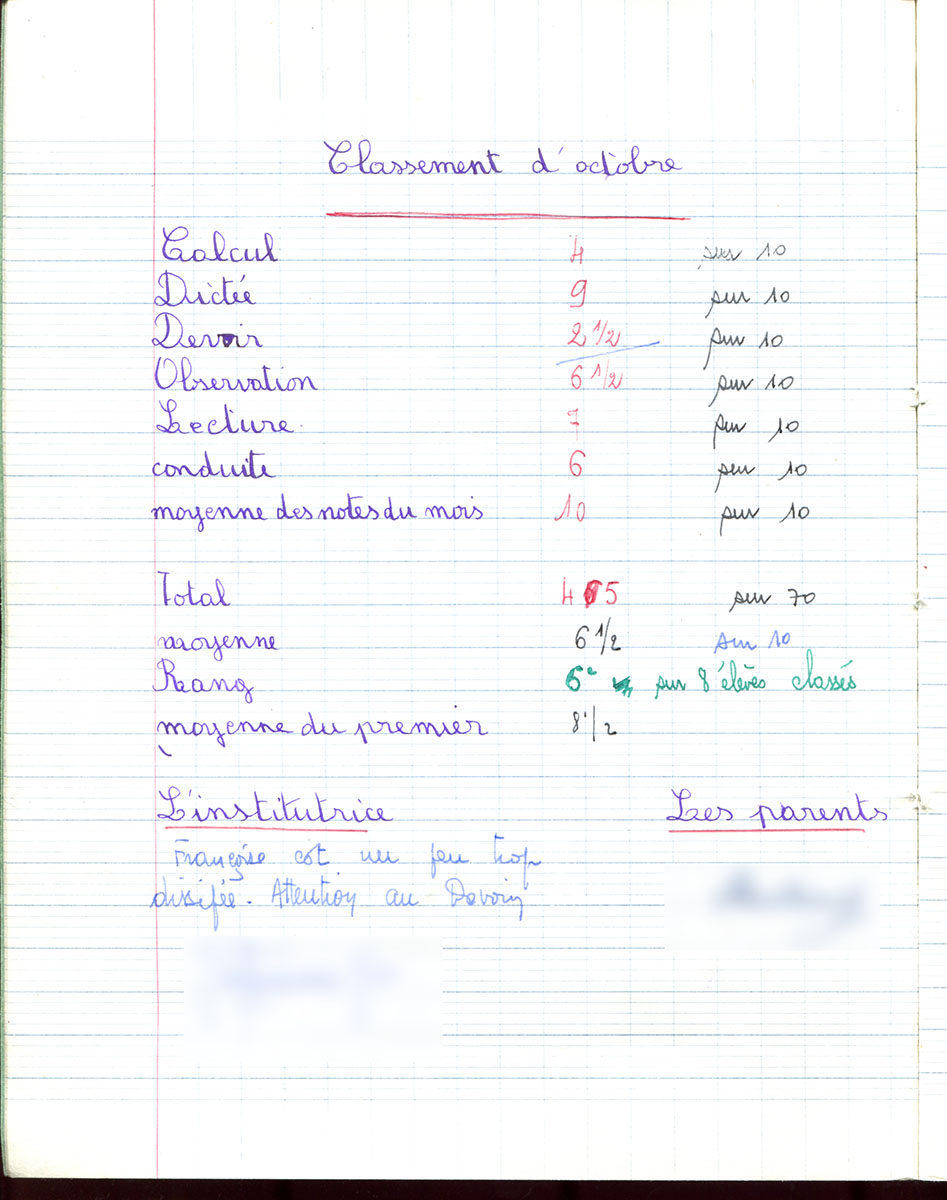 Classement d'octobre
Calcul 4 sur 10
Dictée 9 sur 10
Devoir 2 1/2 sur 10
Observation 6 1/2 sur 10
Lecture 7 sur 10
conduite 6 sur 10
moyenne des notes du mois 10 sur 10
Total 45 sur 70
moyenne 6 1/2 sur 10
Rang 6e sur 8 élèves classés
moyenne du premier 8 1/2
L'institutrice Les parents
Françoise est un peu trop
dissipée. Attention au Devoir